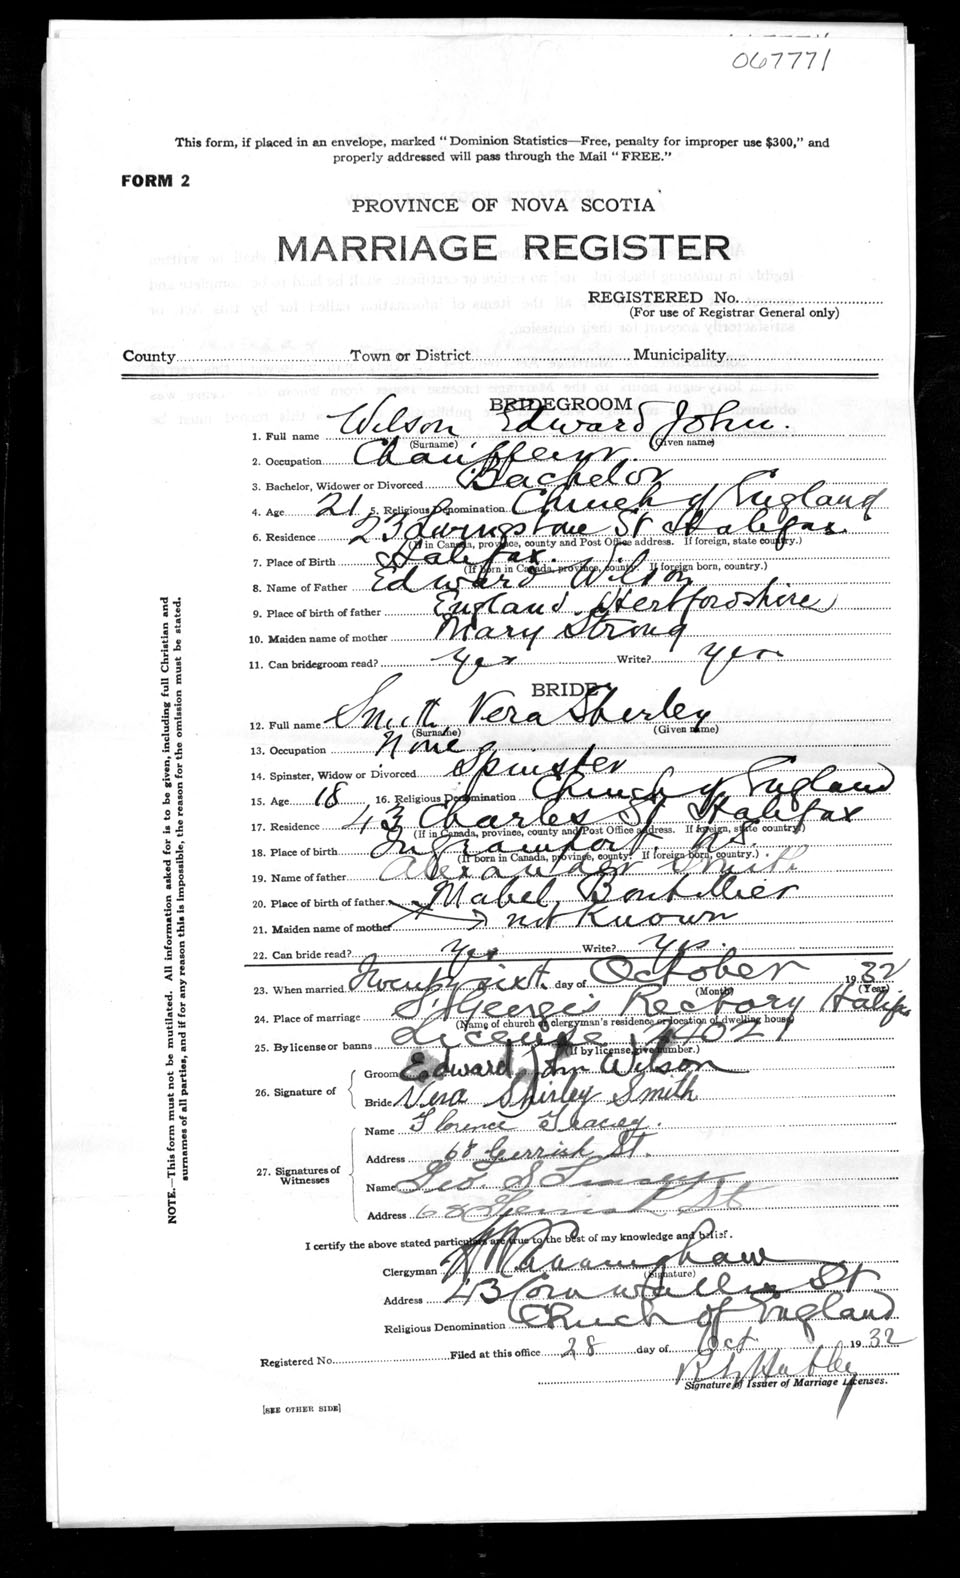 067771
This form, if placed in an envelope, marked "Dominion Statistics—Free, penalty for improper use $300," and
properly addressed will pass through the Mail "FREE."
FORM 2
PROVINCE OF NOVA SCOTIA
MARRIAGE REGISTER
REGISTERED No.
(For use of Registrar General only)
County Town or District Municipality
BRIDEGROOM
1. Full name Wilson Edward John.
(Surname) (Given name)
2. Occupation Chauffeur.
3. Bachelor, Widower or Divorced Bachelor
4. Age 21 5. Religious Denomination Church of England
6. Residence 23 Livingstone St Halifax
(If in Canada, province, county and Post Office address. If foreign, state country.)
7. Place of Birth Halifax.
(If born in Canada, province, county. If foreign born, country.)
8. Name of Father Edward Wilson
9. Place of birth of father England. Hertfordshire
10. Maiden name of mother Mary Strong
11. Can bridegroom read? Yes Write? Yes
BRIDE
12. Full name Smith Vera Shirley
(Surname) (Given name)
13. Occupation None
14. Spinster, Widow or Divorced Spinster
15. Age 18 16. Religious Denomination Church of England
17. Residence 43 Charles St Halifax
(If in Canada, province, county and Post Office address. If foreign, state country)
18. Place of birth Ingramport. N.S.
(If born in Canada, province, county. If foreign born, country.)
19. Name of father Alexander Smith
20. Place of birth of father Mabel Boutillier
21. Maiden name of mother not Known
22. Can bride read? Yes Write? Yes.
23. When married Twenty sixth day of October 1932
(Month) (Year)
24. Place of marriage St George's Rectory Halifax
(Name of church or clergyman's residence or location of dwelling house)
25. By license or banns License
(If by license, give number.)
26. Signature of
Groom Edward John Wilson
Bride Vera Shirley Smith
27. Signatures of Witnesses
Name Florence Tracey.
Address 68 Gerrish St.
Name Geo. S Tracey
Address 68 Gerrish St
I certify the above stated particulars are true to the best of my knowledge and belief.
Clergyman Cunningham
(Signature)
Address 43 Cornwallis St
Religious Denomination Church of England
Registered No. Filed at this office 28 day of Oct 1932
Signature of Issuer of Marriage Licenses.
[SEE OTHER SIDE]
NOTE.—This form must not be mutilated. All information asked for is to be given, including full Christian and
surnames of all parties, and if for any reason this is impossible, the reason for the omission must be stated.